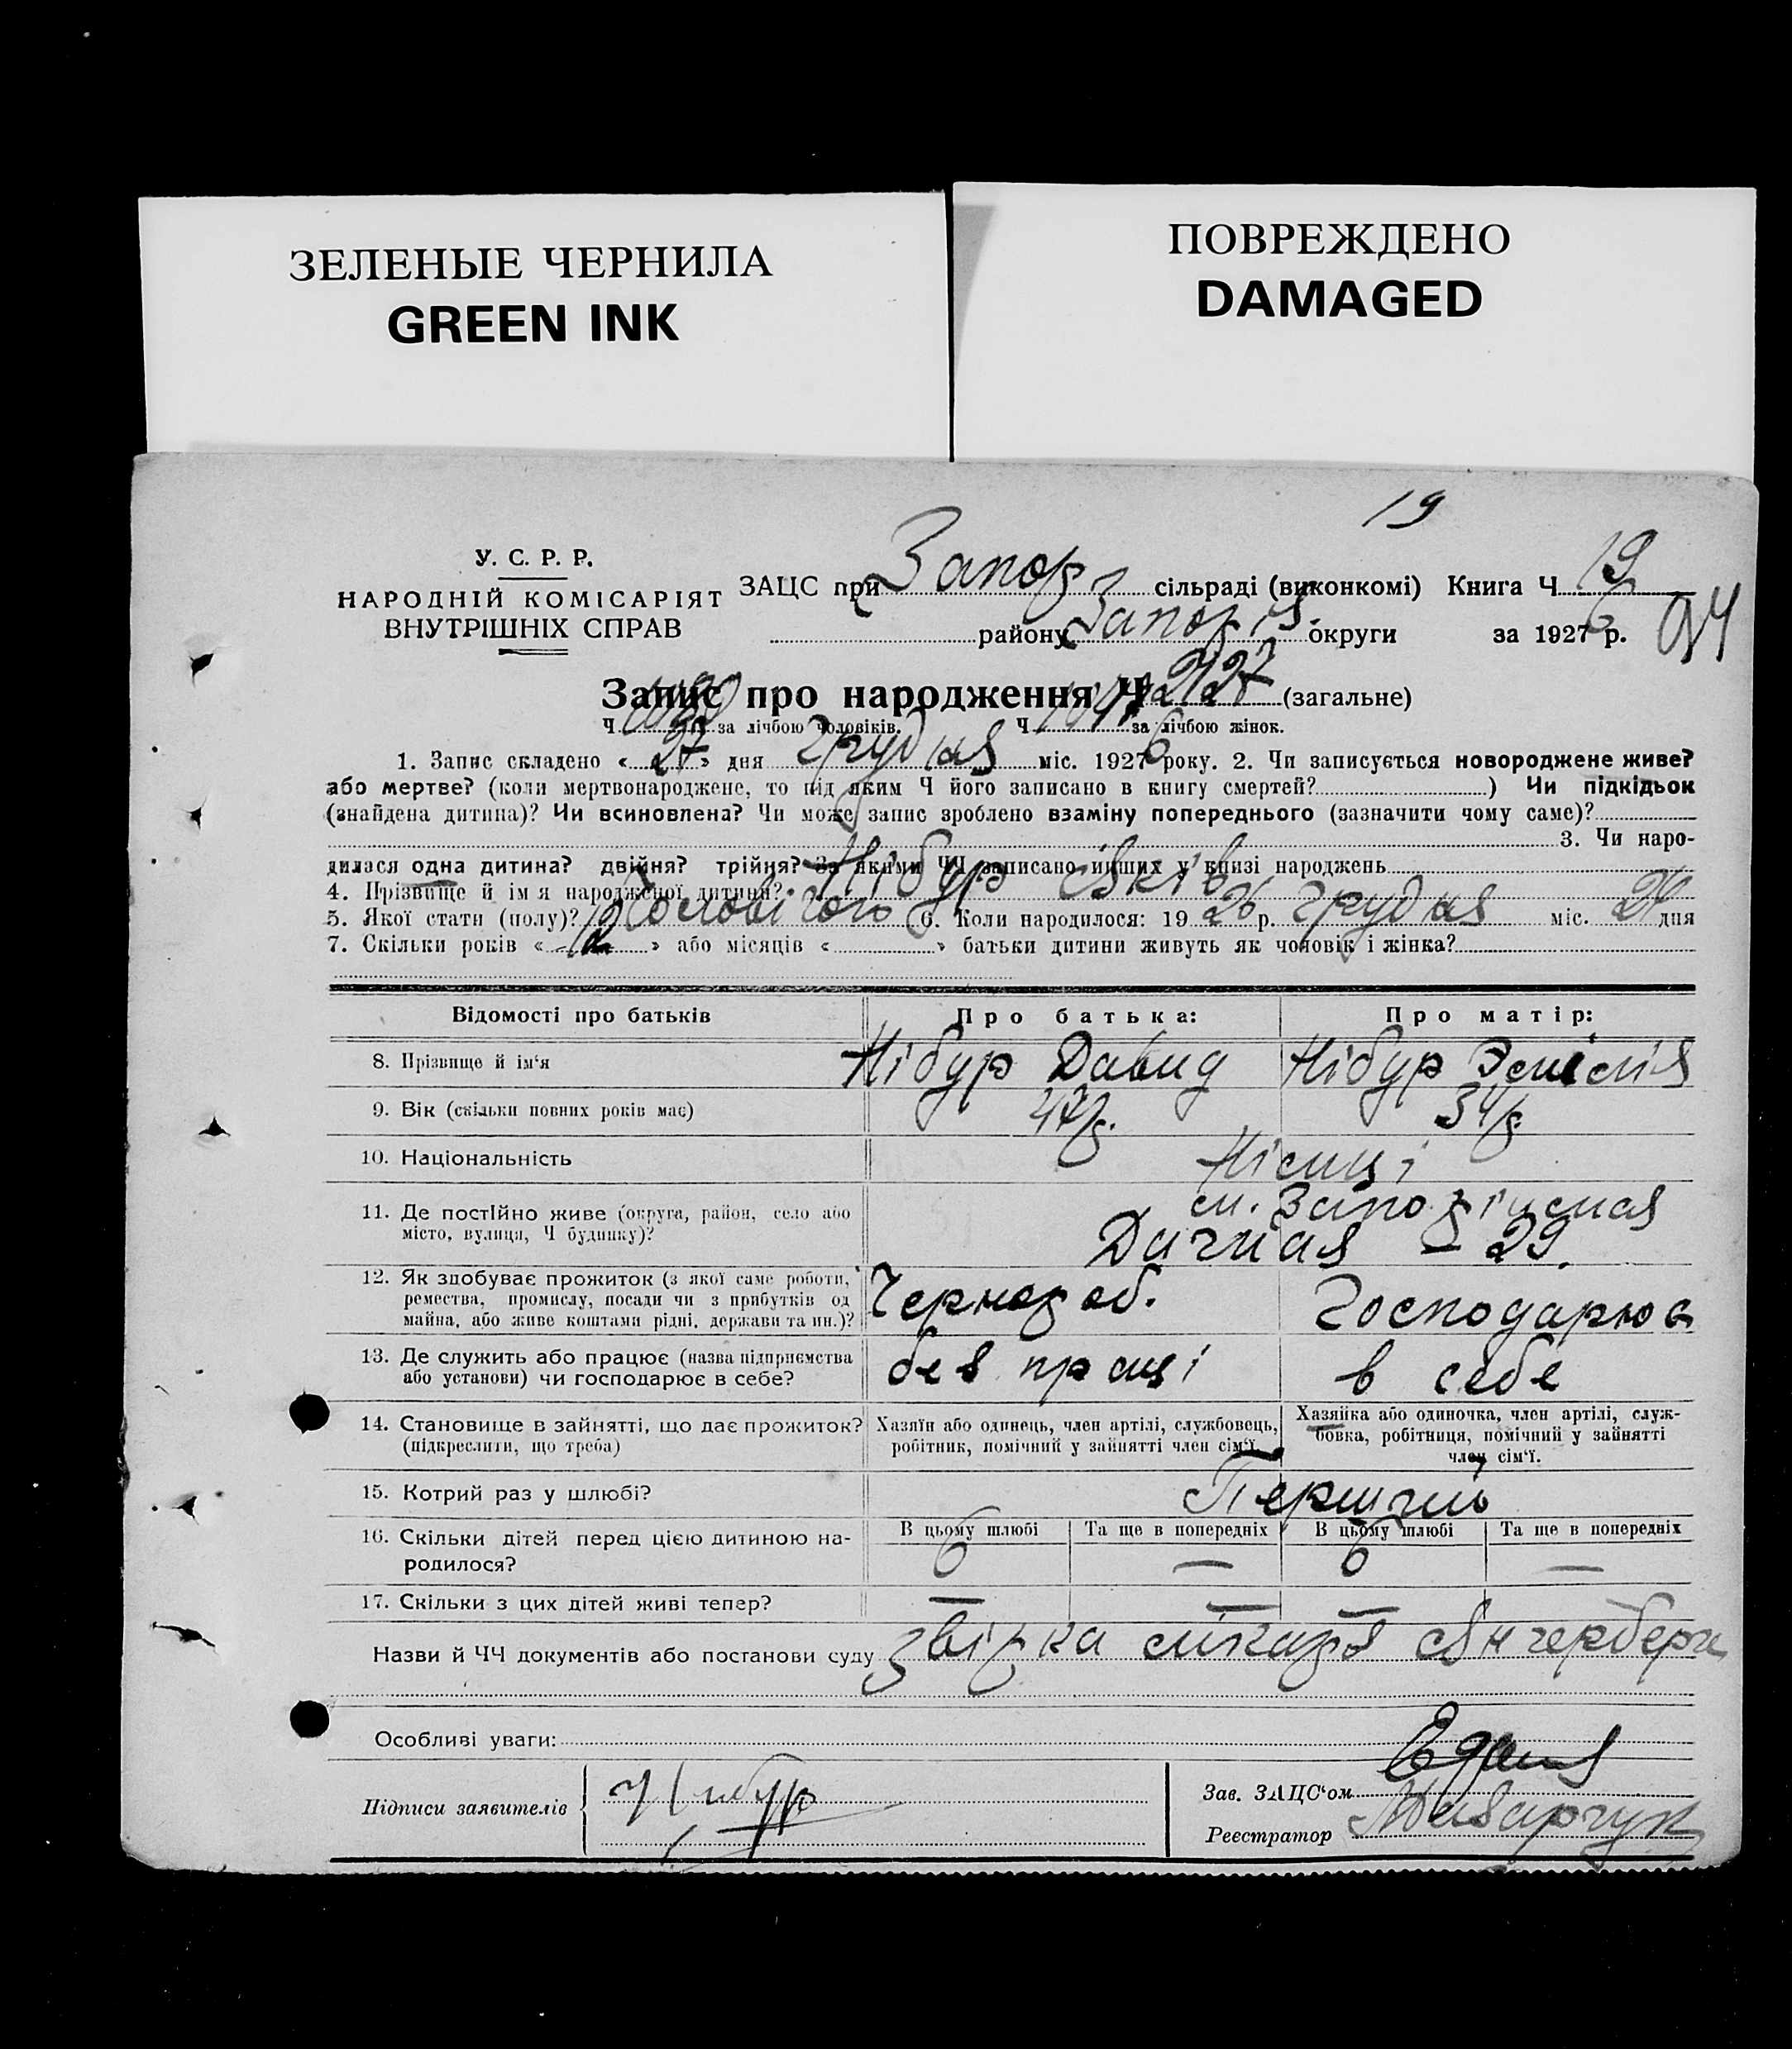 ЗЕЛЕНЫЕ ЧЕРНИЛА
GREEN INK
ПОВРЕЖДЕНО
DAMAGED
19
У. С. Р. Р.
НАРОДНІЙ КОМІСАРІЯТ
ВНУТРІШНІХ СПРАВ
ЗАЦС при Запор сільраді (виконкомі) Книга Ч 19
району Запор округи за 1927 6 р. 94
Запис про народження Ч 2127 (загальне)
Ч за лічбою чоловіків. Ч за лічбою жінок.
1. Запис складено « 27 » дня грудня міс. 1927 6 року. 2. Чи записується новороджене живе?
або мертве? (коли мертвонароджене, то під яким Ч його записано в книгу смертей? ) Чи підкідьок
(знайдена дитина)? Чи всиновлена? Чи може запис зроблено взаміну попереднього (зазначити чому саме)?
3. Чи наро-
дилася одна дитина? двійня? трійня? За якими ЧЧ записано инших у книзі народжень
4. Прізвище й ім'я народженої дитини? Нібур Яків
5. Якої стати (полу)? Чоловічого 6. Коли народилося: 19 26 р. грудня міс. 24 дня
7. Скільки років « 12 » або місяців « » батьки дитини живуть як чоловік і жінка?
Відомості про батьків Про батька: Про матір:
8. Прізвище й ім'я Нібур Давид Нібур Эмілія
9. Вік (скільки повних років має) 34
10. Національність Німці
11. Де постійно живе (округа, район, село або
місто, вулиця, Ч будинку)? Дачная – 29.
12. Як здобуває прожиток (з якої саме роботи,
ремества, промислу, посади чи з прибутків од
майна, або живе коштами рідні, держави та ин.)? Чернороб. Господарює
13. Де служить або працює (назва підприємства
або установи) чи господарює в себе? без праці в себе
14. Становище в зайнятті, що дає прожиток?
(підкреслити, що треба)
Хазяїн або одинець, член артілі, службовець,
робітник, помічний у зайнятті член сім'ї.
Хазяйка або одиночка, член артілі, служ-
бовка, робітниця, помічний у зайнятті
член сім'ї.
15. Котрий раз у шлюбі? Перший
16. Скільки дітей перед цією дитиною на-
родилося?
В цьому шлюбі Та ще в попередніх В цьому шлюбі Та ще в попередніх
6 — 6 —
17. Скільки з цих дітей живі тепер? — — — —
Назви й ЧЧ документів або постанови суду звірка лікаря
Особливі уваги:
Підписи заявителів Нибур
Зав. ЗАЦС'ом
Реєстратор